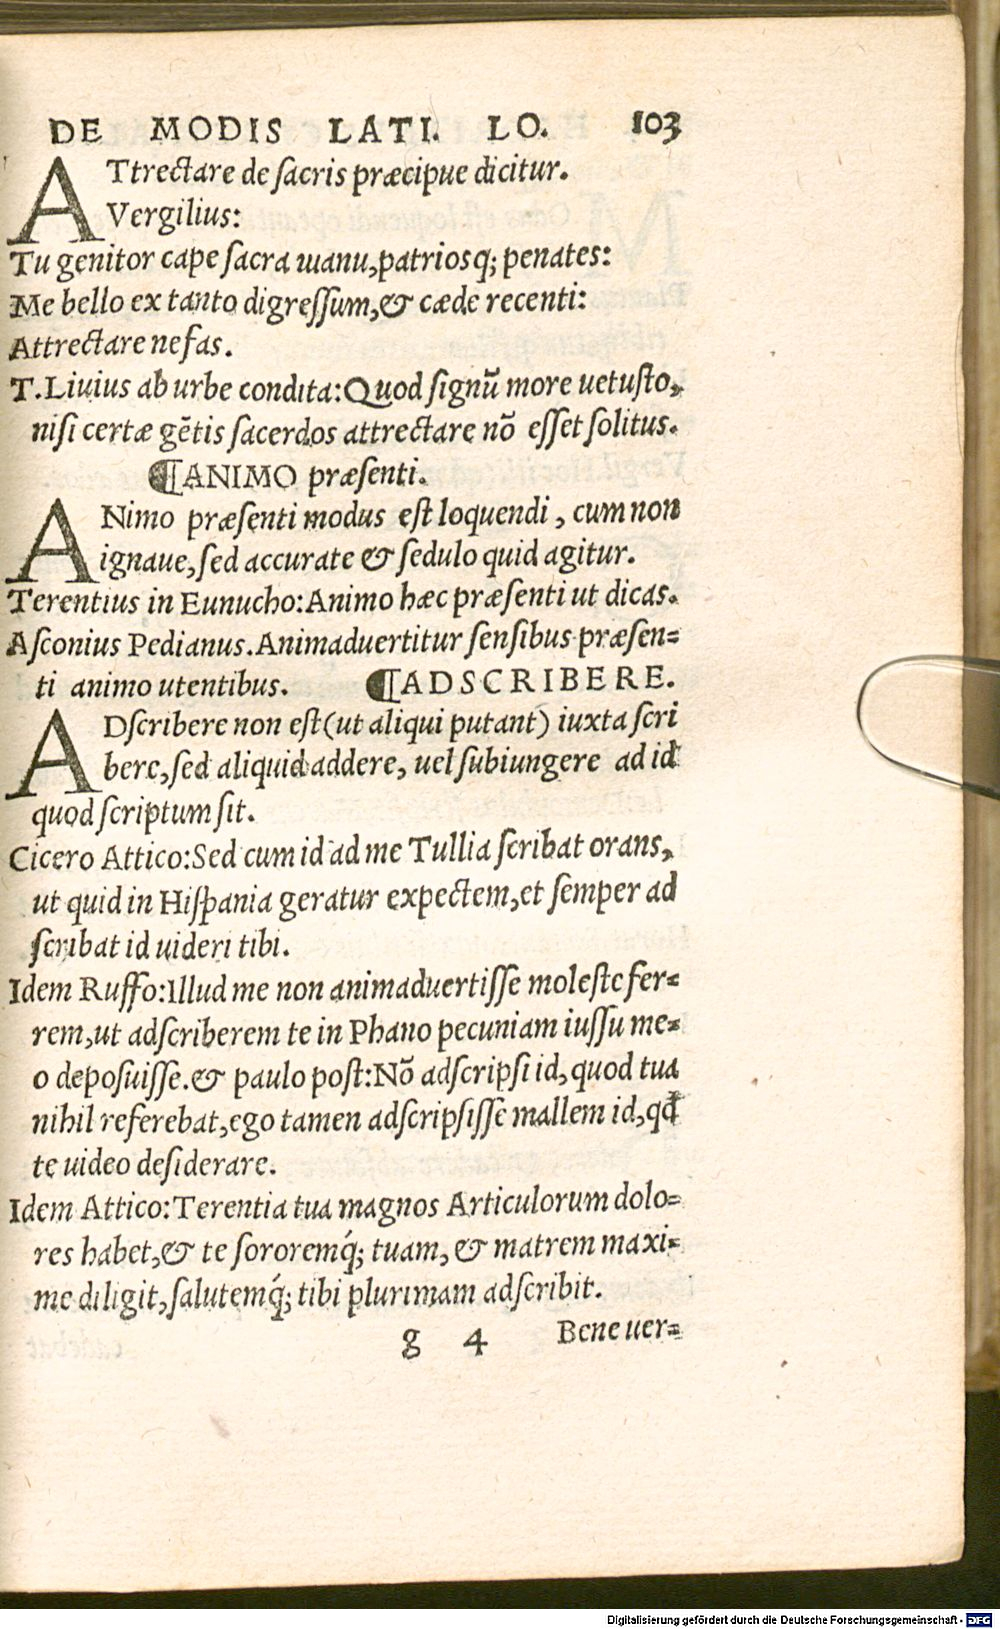 DE MODIS LATI. LO. 103
ATtrectare de sacris præcipue dicitur.
Vergilius:
Tu genitor cape sacra manu,patriosq; penates:
Me bello ex tanto digressum,& cæde recenti:
Attrectare nefas.
T.Liuius ab urbe condita:Quod signū more uetusto,
nisi certæ gētis sacerdos attrectare nō esset solitus.
¶ANIMO præsenti.
ANimo præsenti modus est loquendi, cum non
ignaue,sed accurate & sedulo quid agitur.
Terentius in Eunucho:Animo hæc præsenti ut dicas.
Asconius Pedianus.Animaduertitur sensibus præsen=
ti animo utentibus. ¶ADSCRIBERE.
ADscribere non est(ut aliqui putant) iuxta scri
bere,sed aliquid addere, uel subiungere ad id
quod scriptum sit.
Cicero Attico:Sed cum id ad me Tullia scribat orans,
ut quid in Hispania geratur expectem,et semper ad
scribat id uideri tibi.
Idem Ruffo:Illud me non animaduertisse moleste fer=
rem,ut adscriberem te in Phano pecuniam iussu me=
o deposuisse.& paulo post:Nō adscripsi id,quod tua
nihil referebat,ego tamen adscripsisse mallem id,qđ
te uideo desiderare.
Idem Attico:Terentia tua magnos Articulorum dolo=
res habet,& te sororemq́; tuam, & matrem maxi=
me diligit,salutemq́; tibi plurimam adscribit.
g 4 Bene uer=
Digitalisierung gefördert durch die Deutsche Forschungsgemeinschaft - DFG